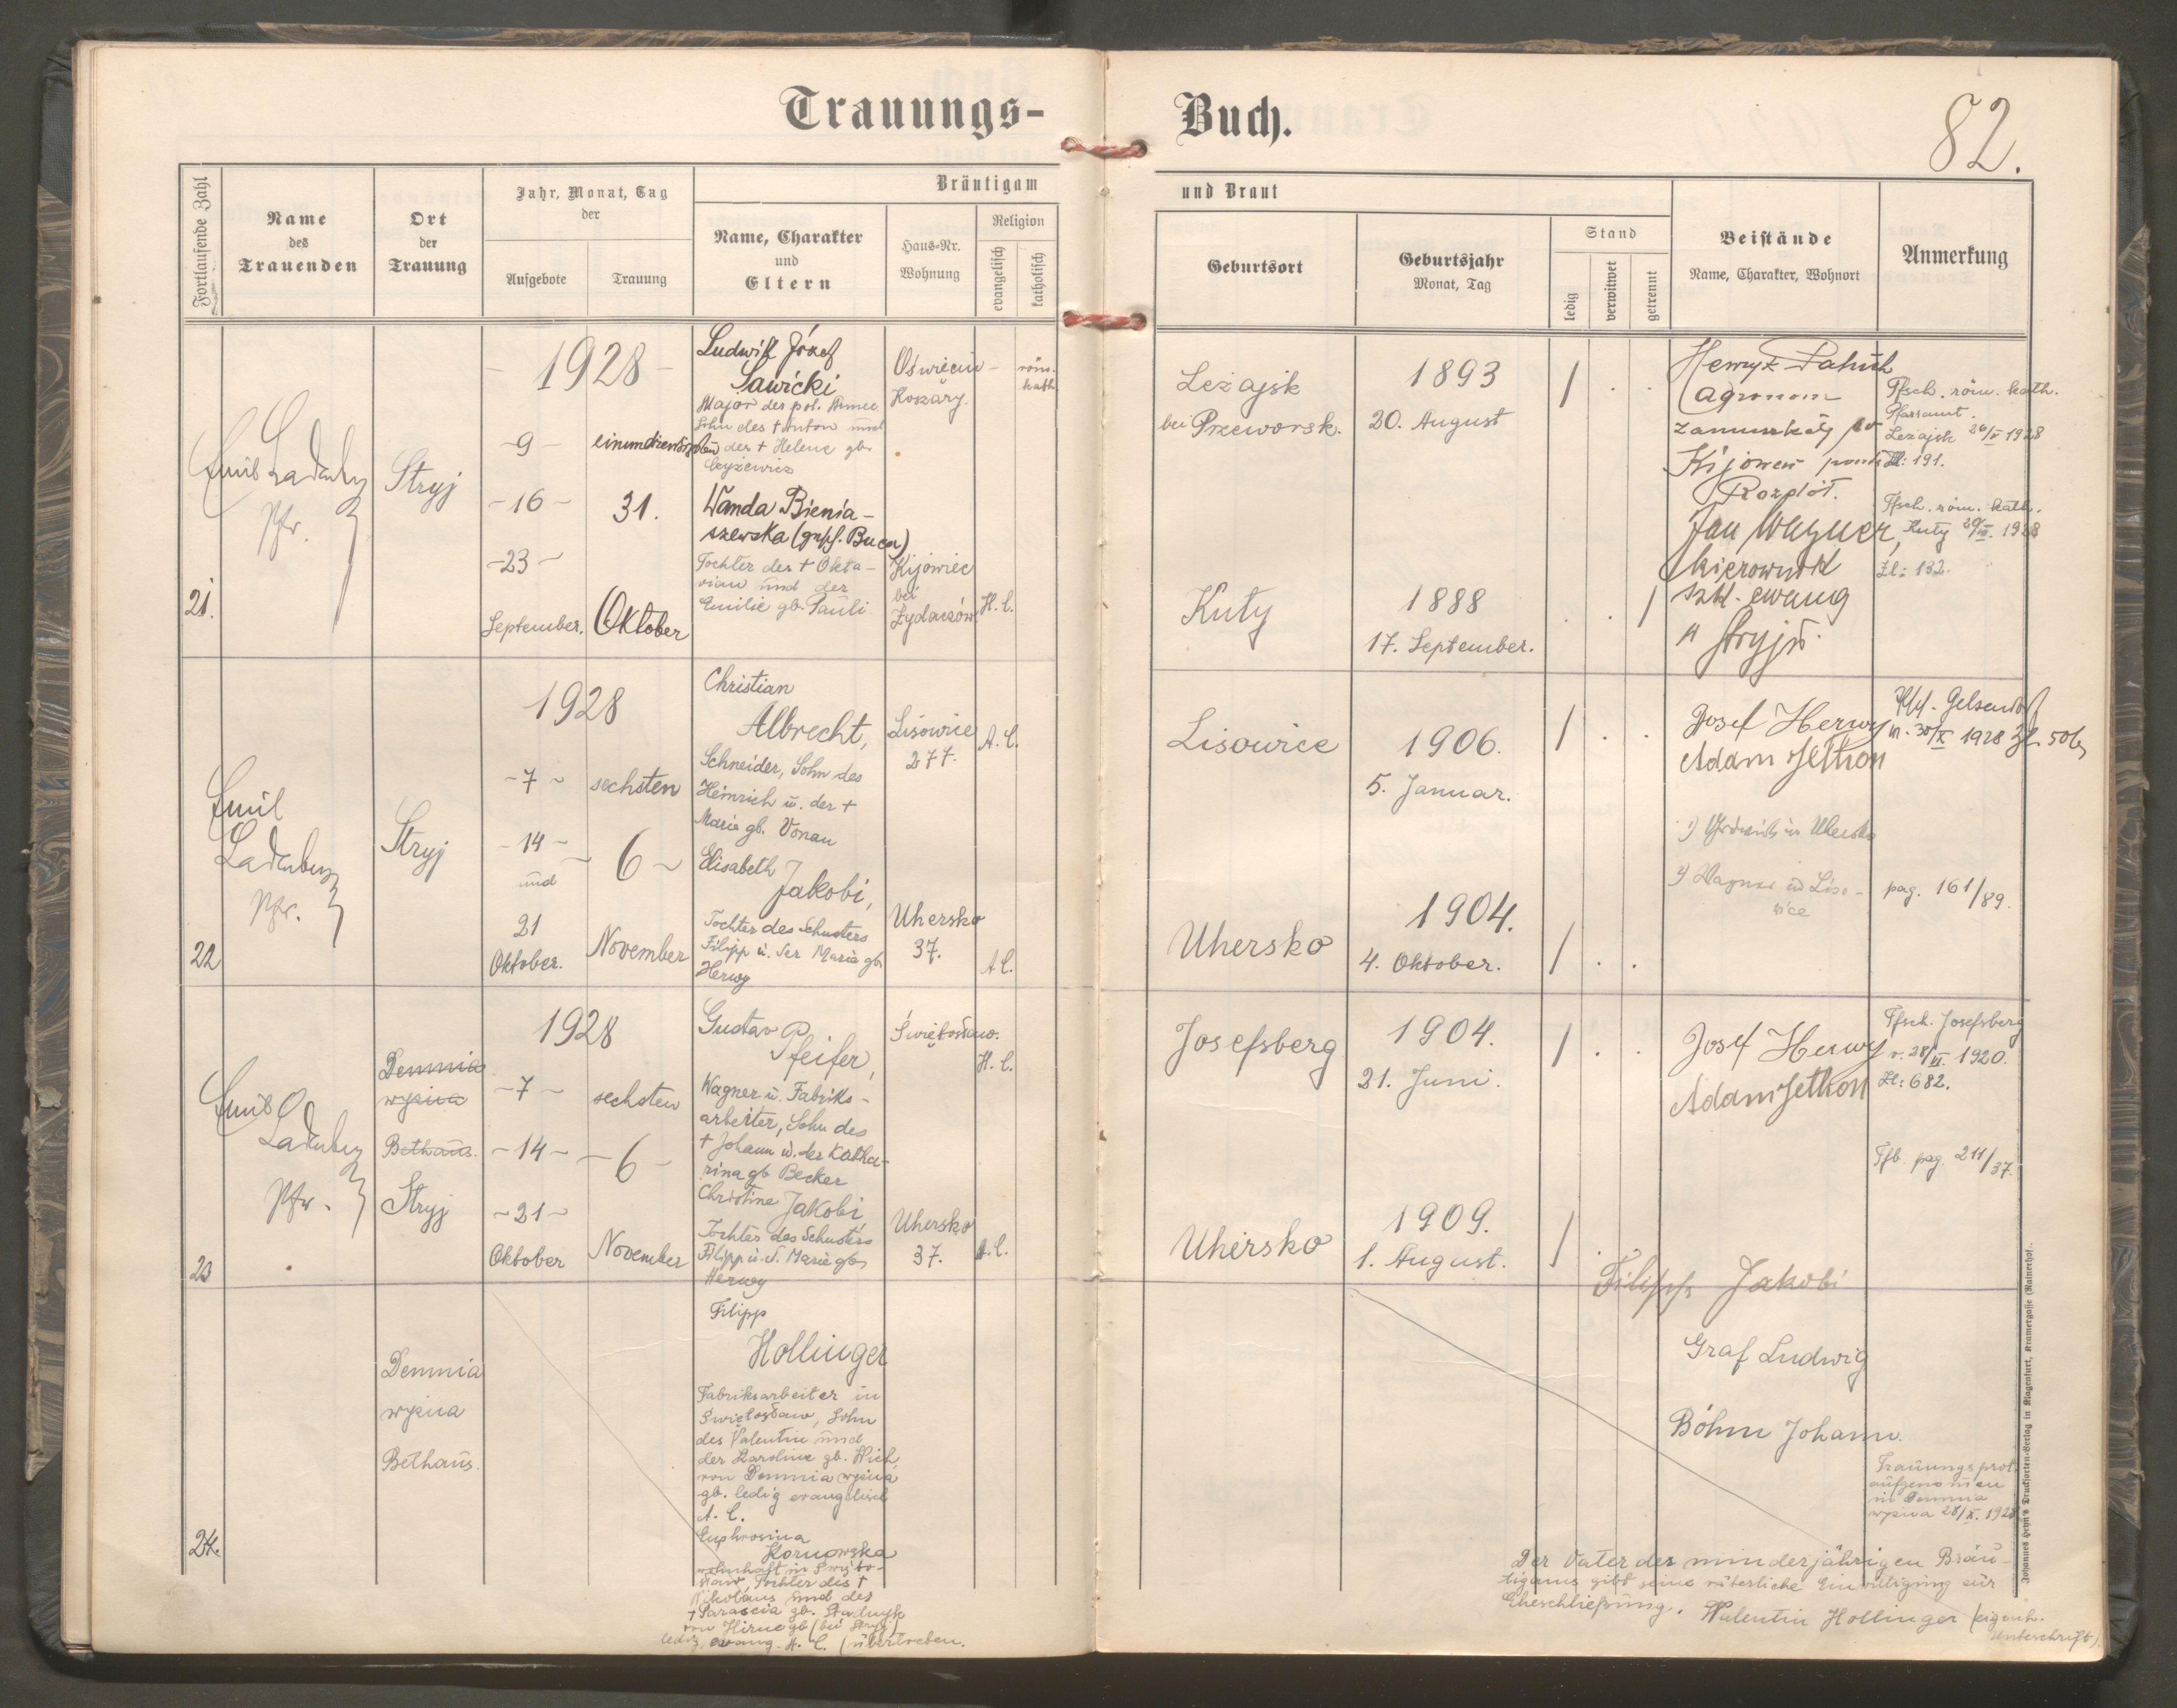 Trauungs-
Buch.
82.
Fortlaufende Zahl
Name
des
Trauenden
Ort
der
Trauung
Jahr, Monat, Tag
der
Aufgebote
Trauung
Bräutigam
Name, Charakter
und
Eltern
Haus-Nr.
Wohnung
Religion
evangelisch
katholisch
und Braut
Geburtsort
Geburtsjahr
Monat, Tag
Stand
ledig
verwitwet
getrennt
Beistände
Name, Charakter, Wohnort
Anmerkung
21.
Emil Ladenberger
Pfr.
Stryj
1928
-9-
-16-
-23-
September.
einunddreissigsten
31.
Oktober
Ludwik Józef
Sawicki
Major der pol. Armee
Sohn des + Anton und
der + Helene gb.
Wanda Bienia-
szewska (gesch. Buca)
Tochter des + Okta-
vian und der
Emilie gb. Pauli
Oświęcim
Koszary.
röm.
kath.
Kijowiec
bei
Żydaczów
H. C.
Leżajsk
bei Przeworsk.
1893
20. August
Kuty
1888
17. September.
Henryk
Agronom
Rozdół.
Jan Wagner,
kierownik
szkł. ewang
w Stryju.
Pfsch. röm. kath.
Pfarramt.
Leżajsk 26/V 1928
Zl: 191.
Pfsch. röm. kath.
Kuty 1928
Zl: 132.
22
Emil
Ladenberger
Pfr.
Stryj
1928
-7-
-14-
und
21
Oktober.
sechsten
-6-
November
Christian
Albrecht,
Schneider, Sohn des
Heinrich u. der +
Marie gb. Vonau
Elisabeth
Jakobi,
Tochter des Schusters
Filipp u. der Marie gb.
Herwy
Lisowice
277.
A. C.
Uhersko
37.
A C.
Lisowice
1906.
5. Januar.
Uhersko
1904.
4. Oktober.
Josef Herwy
Adam Jethon
1) in Uhersko
2) Wagner in Liso-
wice
Gelsendorf
v. 30/X 1928 Zl. 506
pag. 161/89.
23
Emil
Ladenberger
Pfr.
Demnia
wyżna
Bethaus.
Stryj
1928
-7-
-14-
-21-
Oktober
sechsten
-6-
November
Gustav
Pfeifer,
Wagner u. Fabriks-
arbeiter, Sohn des
+ Johann u. der Katha-
rina gb Becker
Christine Jakobi
Tochter des Schusters
Filipp u. d. Marie gb.
Herwy
Świętosław.
H. C.
Uhersko
37.
A. C.
Josefsberg
1904.
21. Juni.
Uhersko
1909.
1. August.
Josef Herwy
Adam Jethon
Filipp Jakobi
Pfsch. Josefsberg
v. 28/VI. 1920.
Zl: 682.
Pfb. pag. 211/37.
24.
Demnia
wyżna
Bethaus.
Filipp
Hollinger
Fabriksarbeiter in
Świętosław, Sohn
des Valentin und
der Karoline gb. Wich
von Demnia wyżna
gb. ledig evangelisch
A. C.
Euphrosina
Kornowska
wohnhaft in Święto-
sław, Tochter des +
Nikolaus und der
+ Parascia gb. Stadnyk
von Hirne gb (bei Stryj)
ledig, evang. A. C. (übertreten.
Graf Ludwig
Böhm Johann.
Trauungsprot.
aufgenommen
in Demnia
wyżna 28/X. 1928
Der Vater des minderjährigen Bräu-
tigams gibt seine väterliche Einwilligung zur
Eheschließung. Walentin Hollinger (eigenh.
Unterschrift).
Johannes Heyn's Drucksorten-Verlag in Klagenfurt, Kramergasse (Rainerhof).